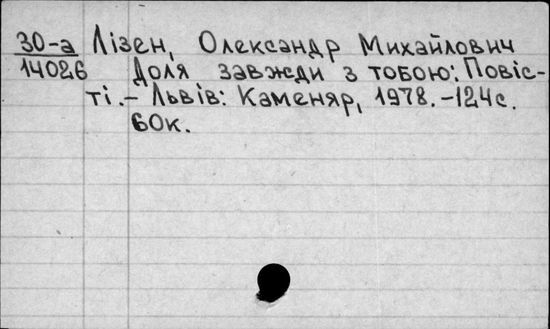 30-а Лізен, Олександр Михайлович
14026 Доля завжди з тобою: Повіс-
ті.- Львів: Каменяр, 1978.-124с.
60к.